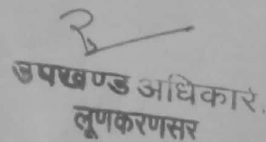 उपखण्ड अधिकारी
लूणकरणसर